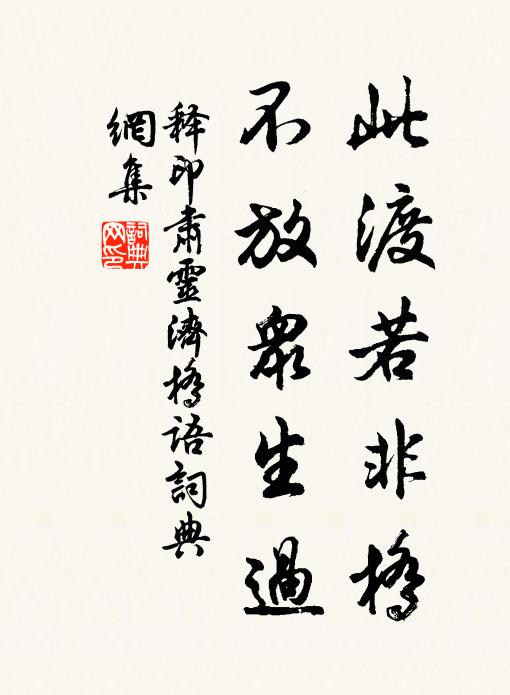 此渡若非橋
不放眾生過
释印肅靈濟橋語詞典
網集
詞典
网印